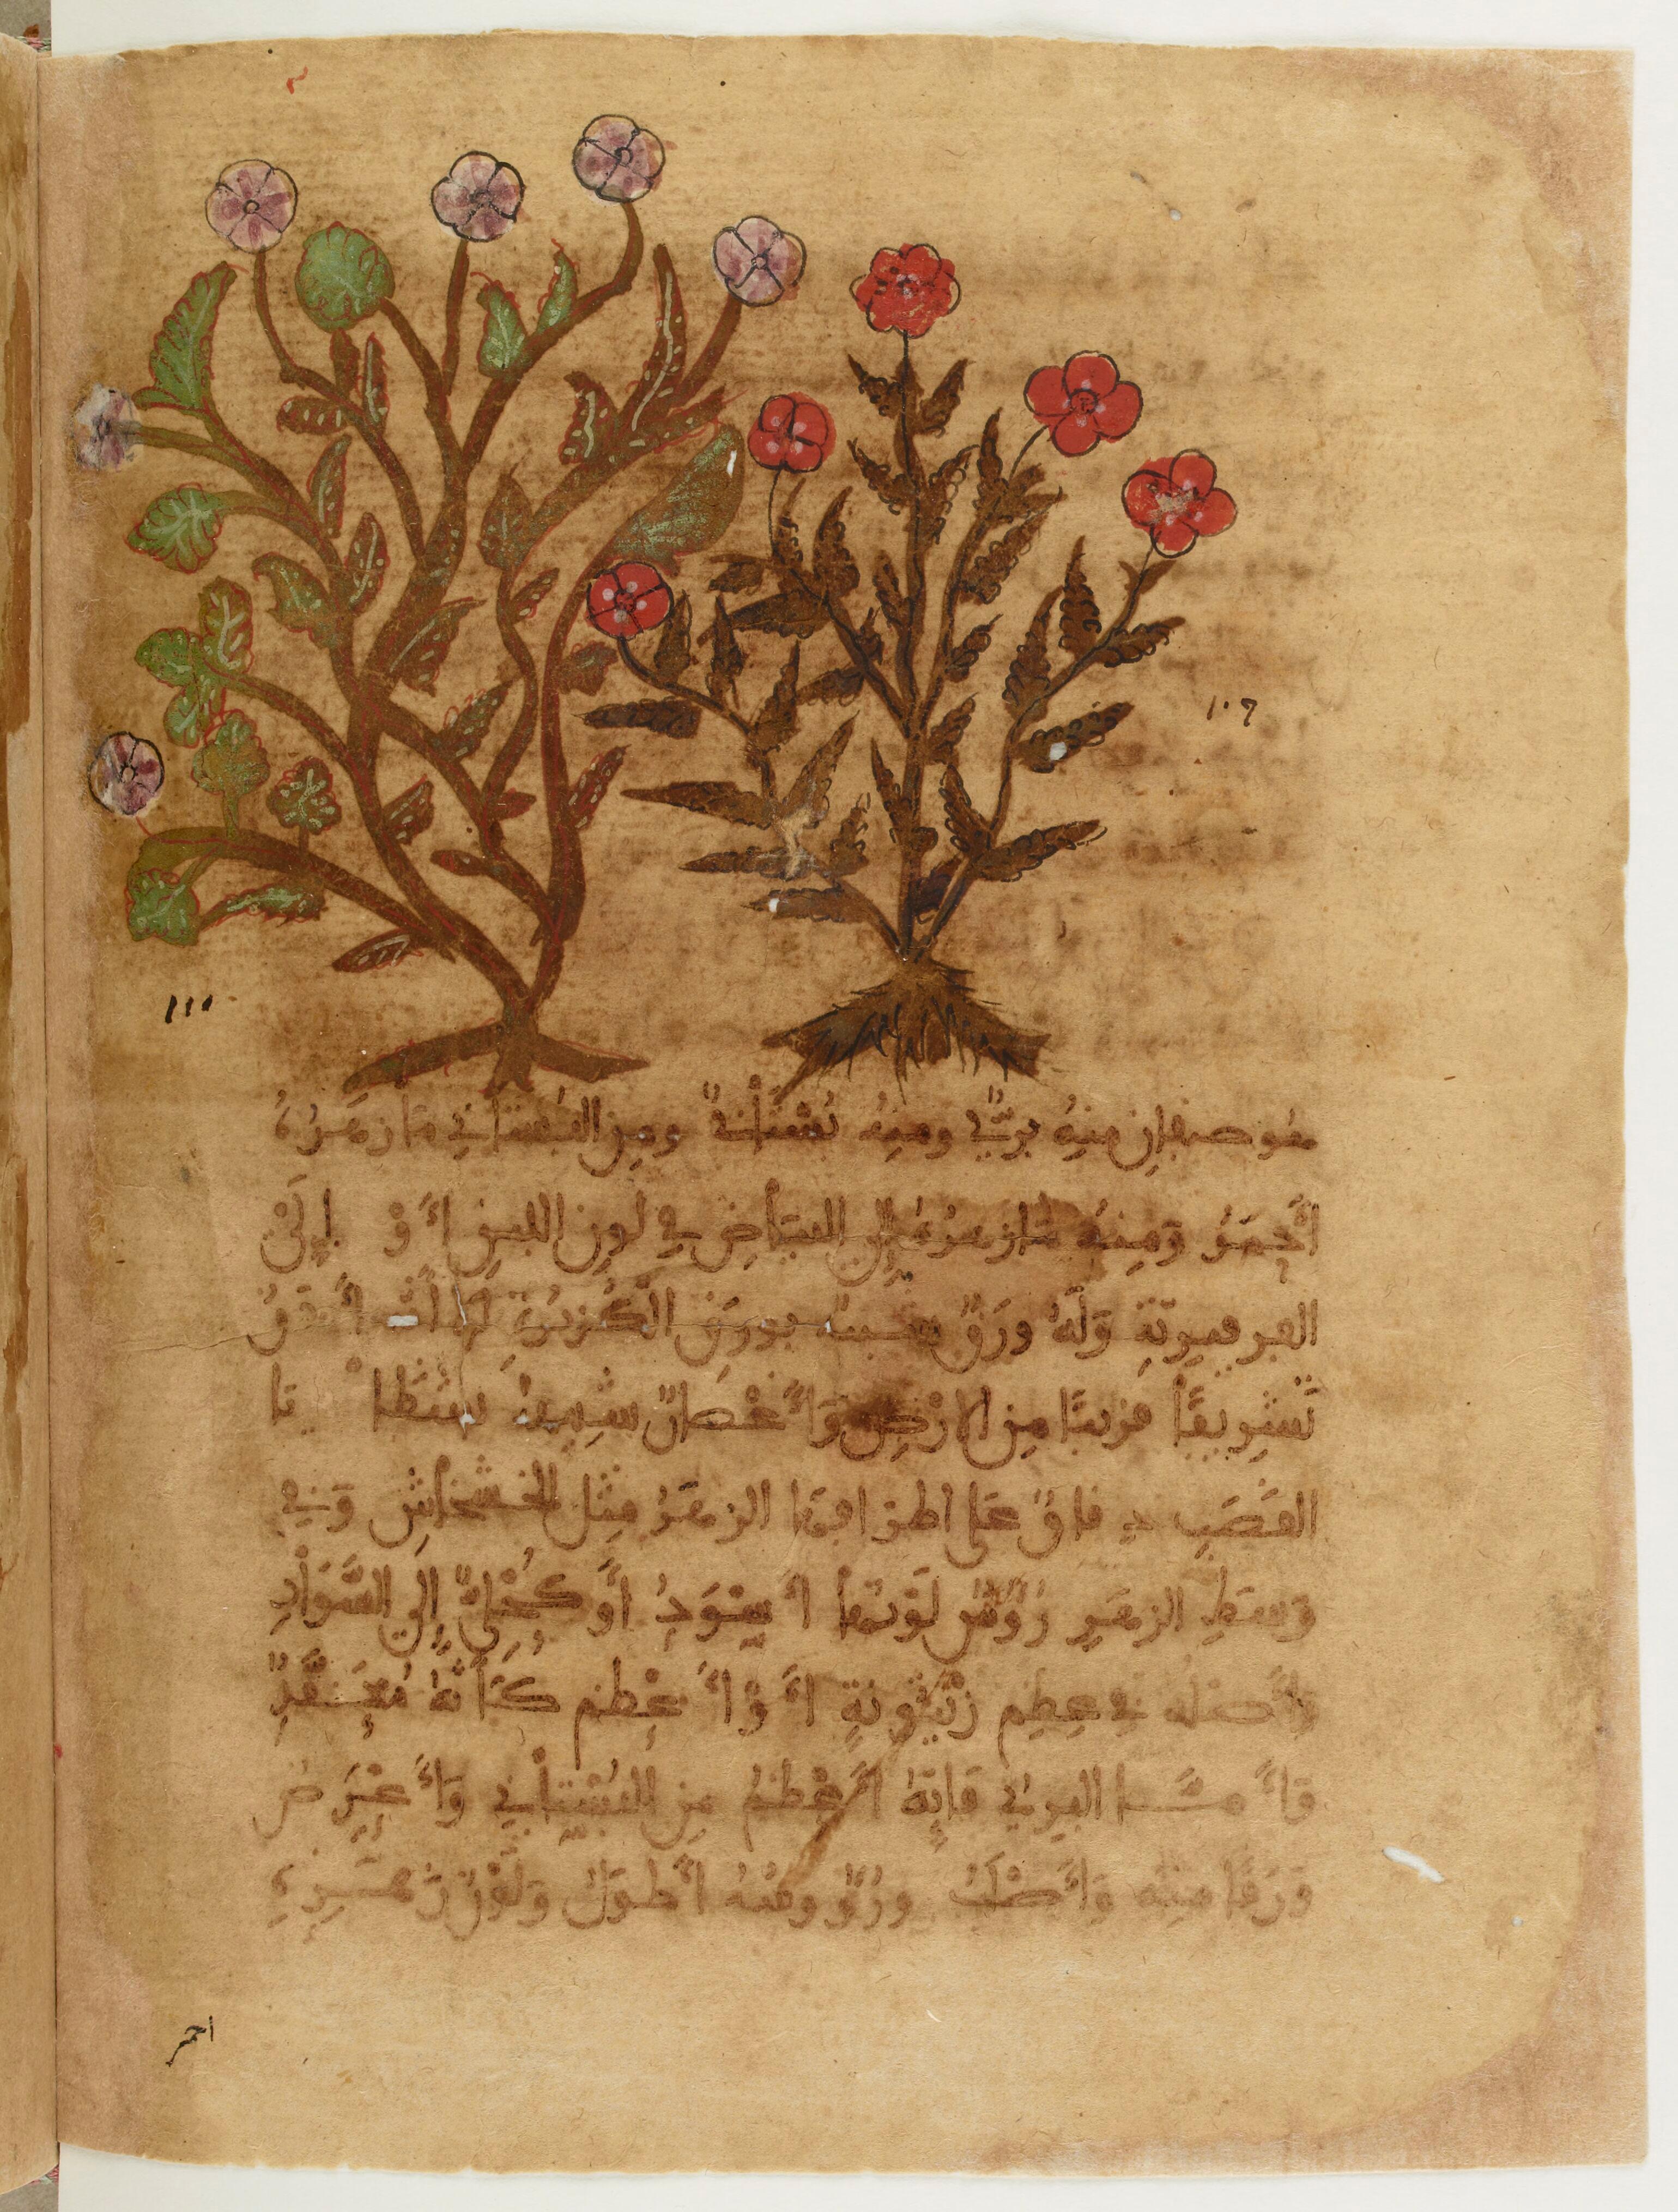 ١٠٩
١١٠
هو صنفان منه بري ومنه بستاني ومن البستاني ما زهره
أحمر ومنه ما زهره إلى البياض في لون اللبن أو إلى
الفرفيرية وله ورق شبيه بورق الكزبرة إلا أنه أدق
تشريفا قريبا من الأرض وأغصان شبيهة شظايا
القصب دقاق على أطرافها الزهر مثل الخشخاش وفي
وسط الزهر رؤوس لونها أسود أو كحلي إلى السواد
وأصله في عظم زيتونة أو أعظم كأنه معقد
وأما البري فإنه أعظم من البستاني وأعرض
ورقا منه وأصلب ورؤوسه أطول ولون زهره
احمر